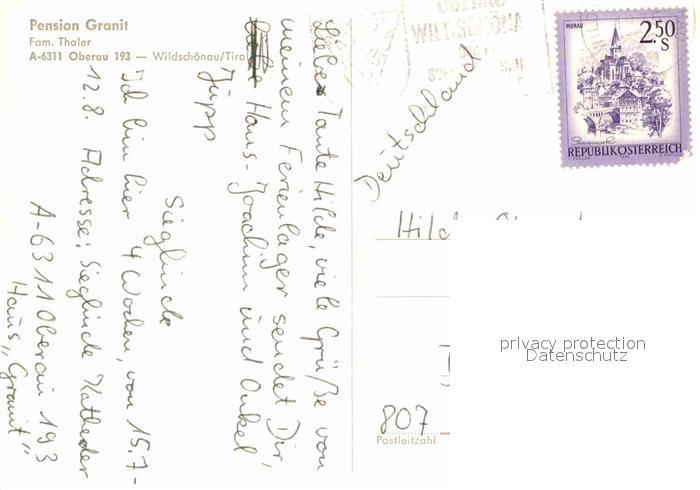 Pension Granit
Fam. Thaler
A-6311 Oberau 193 — Wildschönau/Tirol
Liebe Tante Hilde, viele Grüße von
meinem Ferienlager sendet Dir,
Hans-Joachim und Onkel
Jupp
Sieglinde
Ich bin hier 4 Wochen, von 15.7-
12.8. Adresse: Sieglinde
A-6311 Oberau 193
Haus „Granit"
OBERAU
WILDSCHÖNA
MURAU
2.50
S
REPUBLIK ÖSTERREICH
Deutschland
privacy protection
Datenschutz
807
Postleitzahl